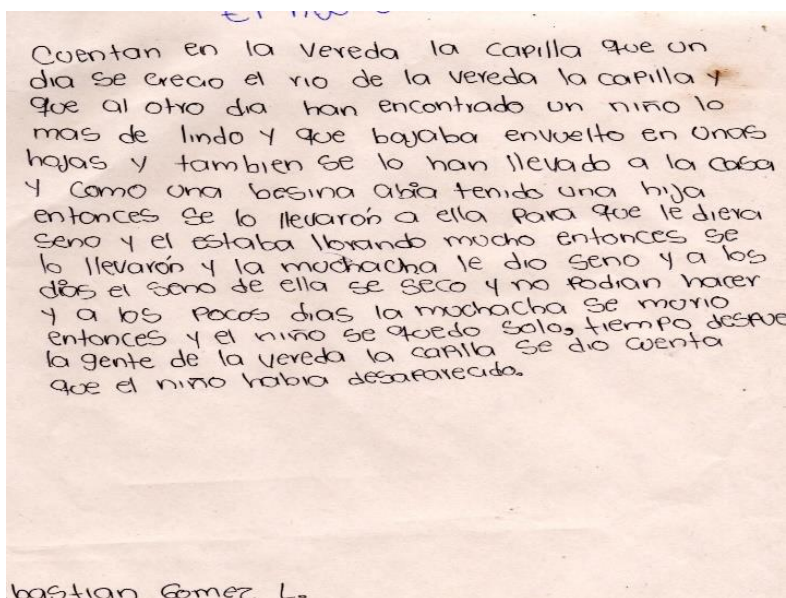 Cuentan en la vereda la capilla que un
dia se crecio el rio de la vereda la capilla y
que al otro dia han encontrado un niño lo
mas de lindo y que bajaba envuelto en unas
hojas y tambien se lo han llevado a la casa
y como una besina abia tenido una hija
entonces se lo llevarón a ella para que le diera
seno y el estaba llorando mucho entonces se
lo llevarón y la muchacha le dio seno y a los
dias el seno de ella se seco y no podian hacer
y a los pocos dias la muchacha se murio
entonces y el niño se quedo solo, tiempo despue
la gente de la vereda la capilla se dio cuenta
que el niño habia desaparecido.
bastian Gomez L.